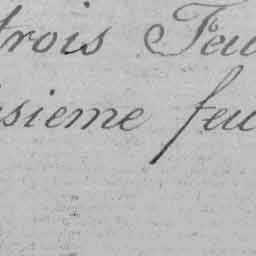 trois Feu
isieme feu